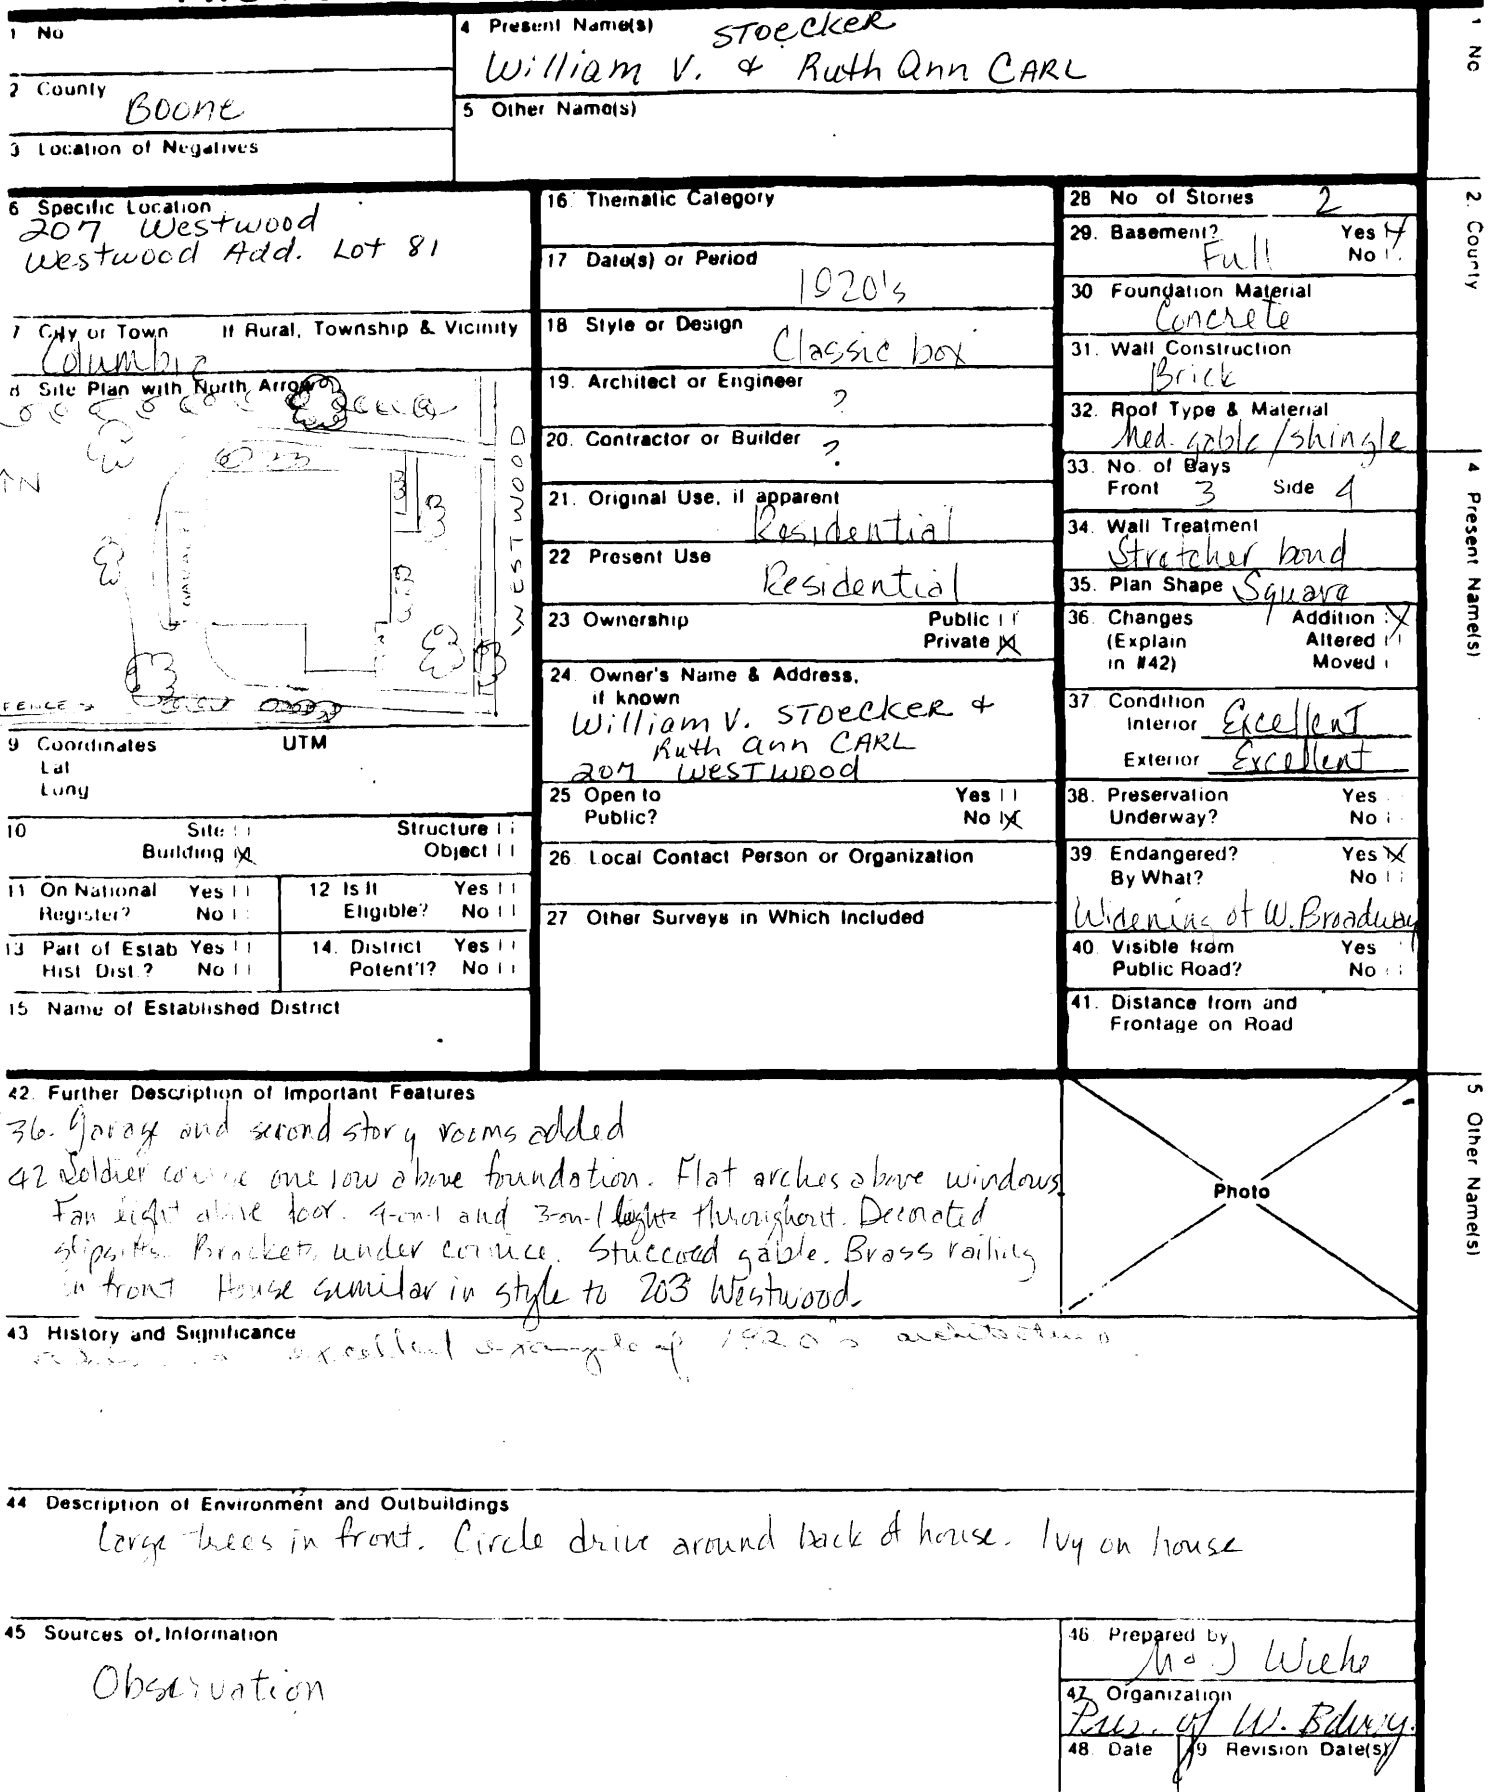 1 No
4 Present Name(s)
STOECKER
William V. & Ruth Ann CARL
2 County
Boone
5 Other Name(s)
3 Location of Negatives
6 Specific Location
207 Westwood
Westwood Add. Lot 81
7 City or Town If Rural, Township & Vicinity
Columbia
8 Site Plan with North Arrow
N
GARAGE
WESTWOOD
FENCE
9 Coordinates UTM
Lat
Long
10 Site Structure
Building Object
11 On National Register? Yes No
12 Is It Eligible? Yes No
13 Part of Estab Hist Dist.? Yes No
14. District Potent'l? Yes No
15 Name of Established District
16 Thematic Category
17 Date(s) or Period
1920's
18 Style or Design
Classic box
19. Architect or Engineer
?
20. Contractor or Builder
?
21. Original Use, if apparent
Residential
22 Present Use
Residential
23 Ownership Public
Private X
24 Owner's Name & Address,
if known
William V. STOECKER &
Ruth Ann CARL
207 WESTWOOD
25 Open to Yes
Public? No X
26. Local Contact Person or Organization
27 Other Surveys in Which Included
28 No of Stories 2
29. Basement? Yes
Full No
30 Foundation Material
Concrete
31. Wall Construction
Brick
32. Roof Type & Material
Med. gable/shingle
33. No. of Bays
Front 3 Side 4
34. Wall Treatment
Stretcher bond
35. Plan Shape Square
36. Changes Addition X
(Explain Altered
in #42) Moved
37. Condition
Interior Excellent
Exterior Excellent
38. Preservation Yes
Underway? No
39 Endangered? Yes X
By What? No
Widening of W. Broadway
40. Visible from Yes
Public Road? No
41. Distance from and
Frontage on Road
42. Further Description of Important Features
36. Garage and second story rooms added
42 Soldier course one row above foundation. Flat arches above windows
Fan light above door. 4-on-1 and 3-on-1 lights throughout. Decorated
slipsills. Brackets under cornice. Stuccoed gable. Brass railing
in front House similar in style to 203 Westwood.
Photo
43 History and Significance
excellent example of 1920's architecture
44 Description of Environment and Outbuildings
Large trees in front. Circle drive around back of house. Ivy on house
45 Sources of Information
Observation
46 Prepared by
Wiehe
47 Organization
Pres. of W. Bdway.
48 Date 49 Revision Date(s)
1 No
2. County
4 Present Name(s)
5 Other Name(s)